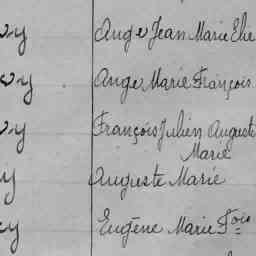 Ange Jean Marie Elie
Ange Marie François
François Julien Auguste
Marie
Auguste Marie
Eugène Marie Fois